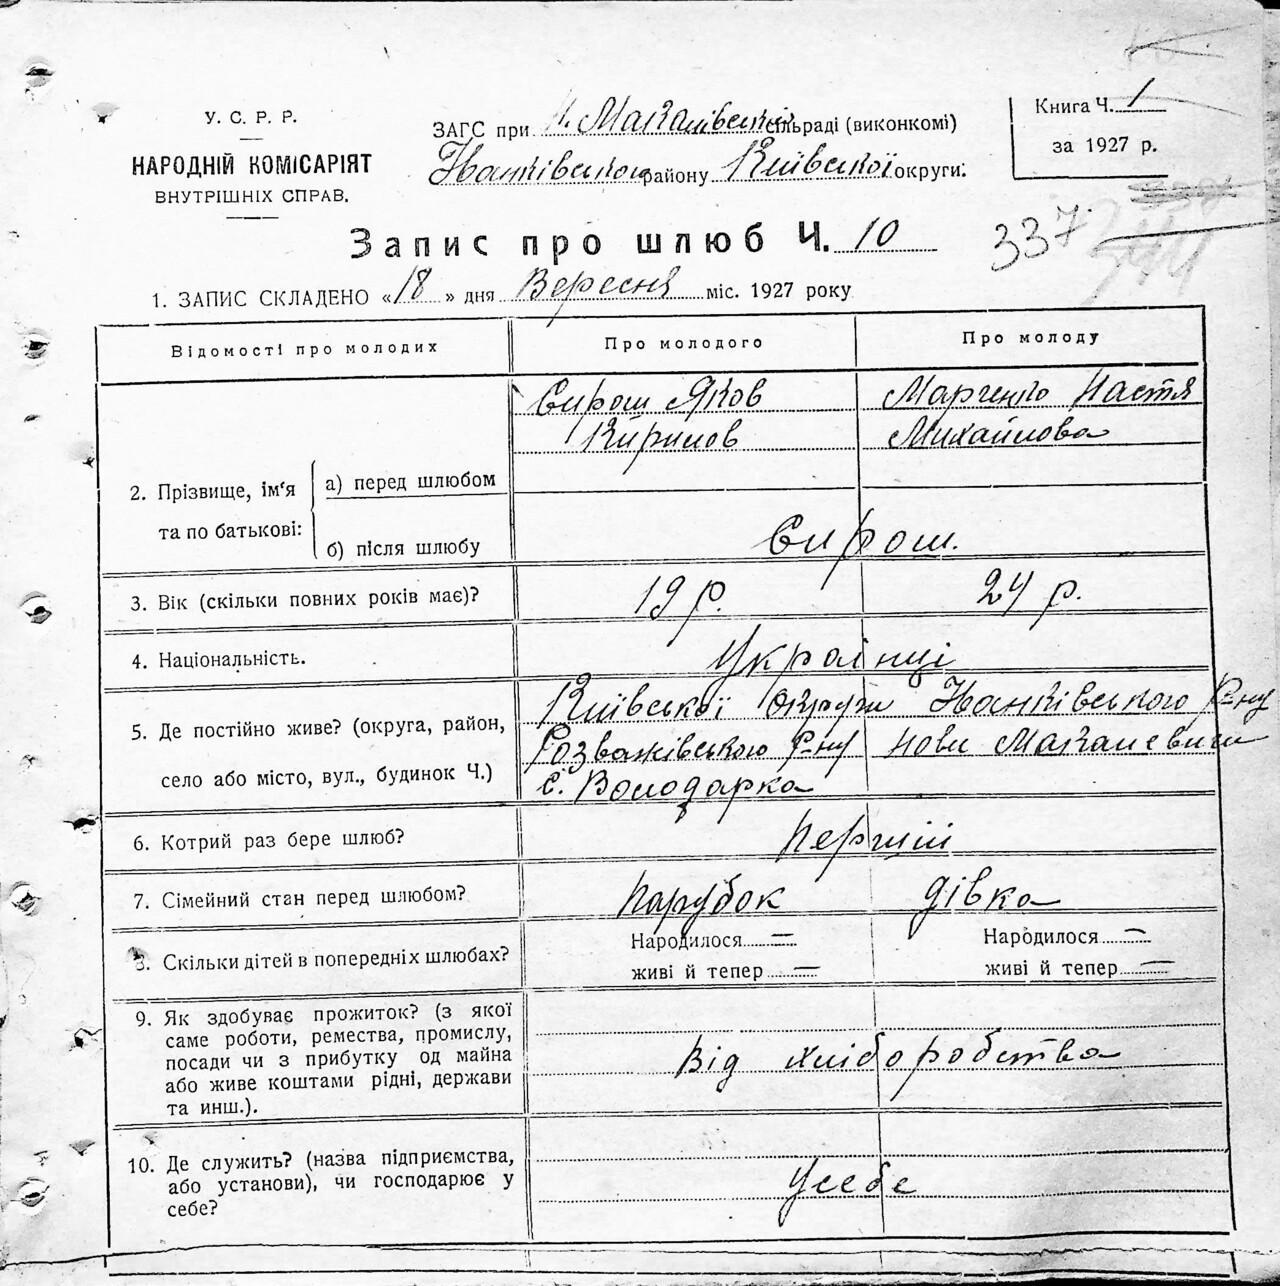 У. С. Р. Р.
НАРОДНІЙ КОМІСАРІЯТ
ВНУТРІШНІХ СПРАВ.
ЗАГС при Н. Макалівській сільраді (виконкомі)
Іванківського району Київської округи:
Книга Ч. 1
за 1927 р.
337
Запис про шлюб Ч. 10
1. ЗАПИС СКЛАДЕНО «18» дня Вересня міс. 1927 року
Відомості про молодих Про молодого Про молоду
Сирош Яков Марченко Настя
Кирилов Михайлова
2. Прізвище, ім'я та по батькові:
а) перед шлюбом
б) після шлюбу Сирош.
3. Вік (скільки повних років має)? 19 р. 24 р.
4. Національність. Українці
5. Де постійно живе? (округа, район,
село або місто, вул., будинок Ч.)
Київської округи Іванківського Р-ну
Розважівського Р-ну Нови Макалевичи
с. Володарка
6. Котрий раз бере шлюб? Перший
7. Сімейний стан перед шлюбом? Парубок дівка
8. Скільки дітей в попередніх шлюбах?
Народилося — Народилося —
живі й тепер — живі й тепер —
9. Як здобуває прожиток? (з якої
саме роботи, ремества, промислу,
посади чи з прибутку од майна
або живе коштами рідні, держави
та инш.).
Від хліборобства
10. Де служить? (назва підприємства,
або установи), чи господарює у
себе?
Усебе